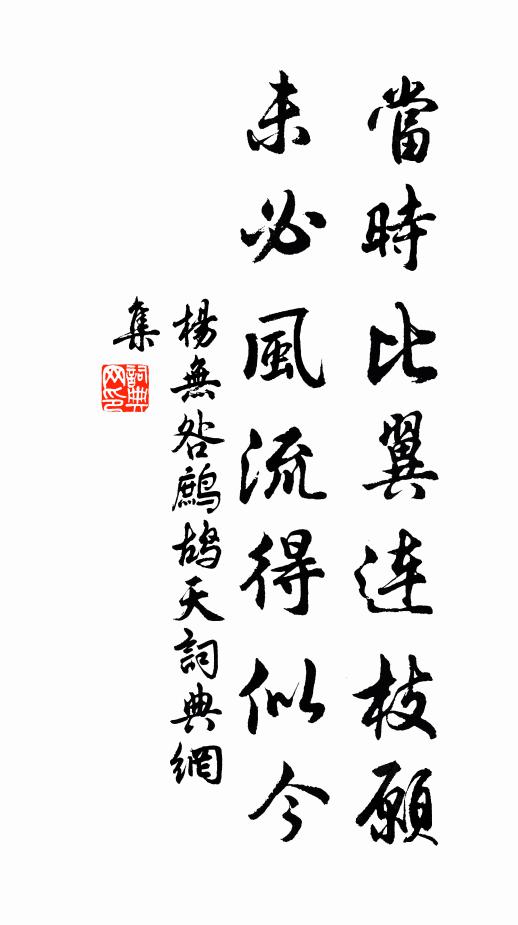 當時比翼連枝願
未必風流得似今
楊無咎鷓鴣天詞典網
集
詞典网印